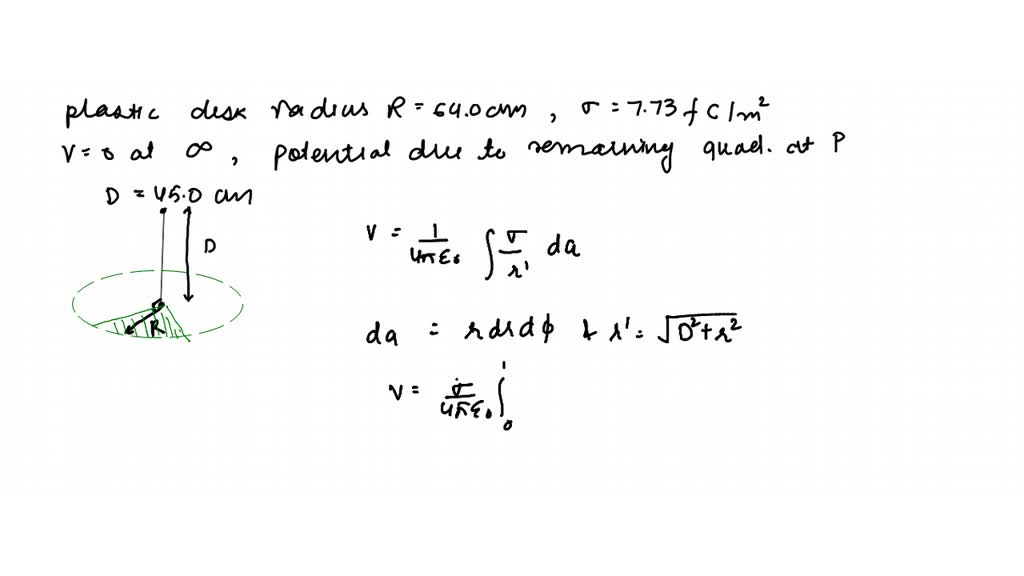 plastic disk radius R = 64.0 cm , σ = 7.73 f C/m²
V = 0 at ∞ , potential due to remaining quad. at P
D = 45.0 cm
D
R
V = 1/4πε₀ ∫ σ/r' da
da = r dr dϕ & r' = √D²+r²
V = σ/4πε₀ ∫₀¹